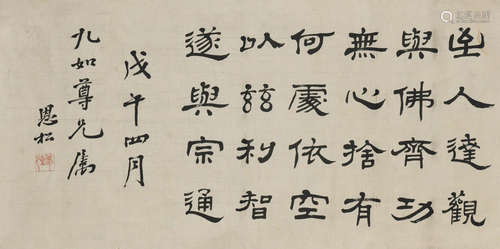 至人達觀
與佛齊功
無心捨有
何處依空
以茲利智
遂與宗通
戊午四月
九如尊兄屬
恩松